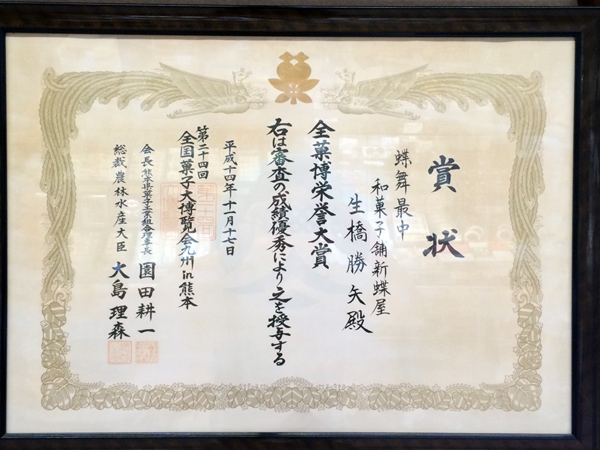 賞状
蝶舞最中
和菓子舗新蝶屋
生橋勝矢殿
全菓博栄誉大賞
右は審査の成績優秀により之を授与する
平成十四年十一月十七日
第二十四回
全国菓子大博覧会九州in熊本
会長熊本県菓子工業組合理事長 園田耕一
総裁農林水産大臣 大島理森